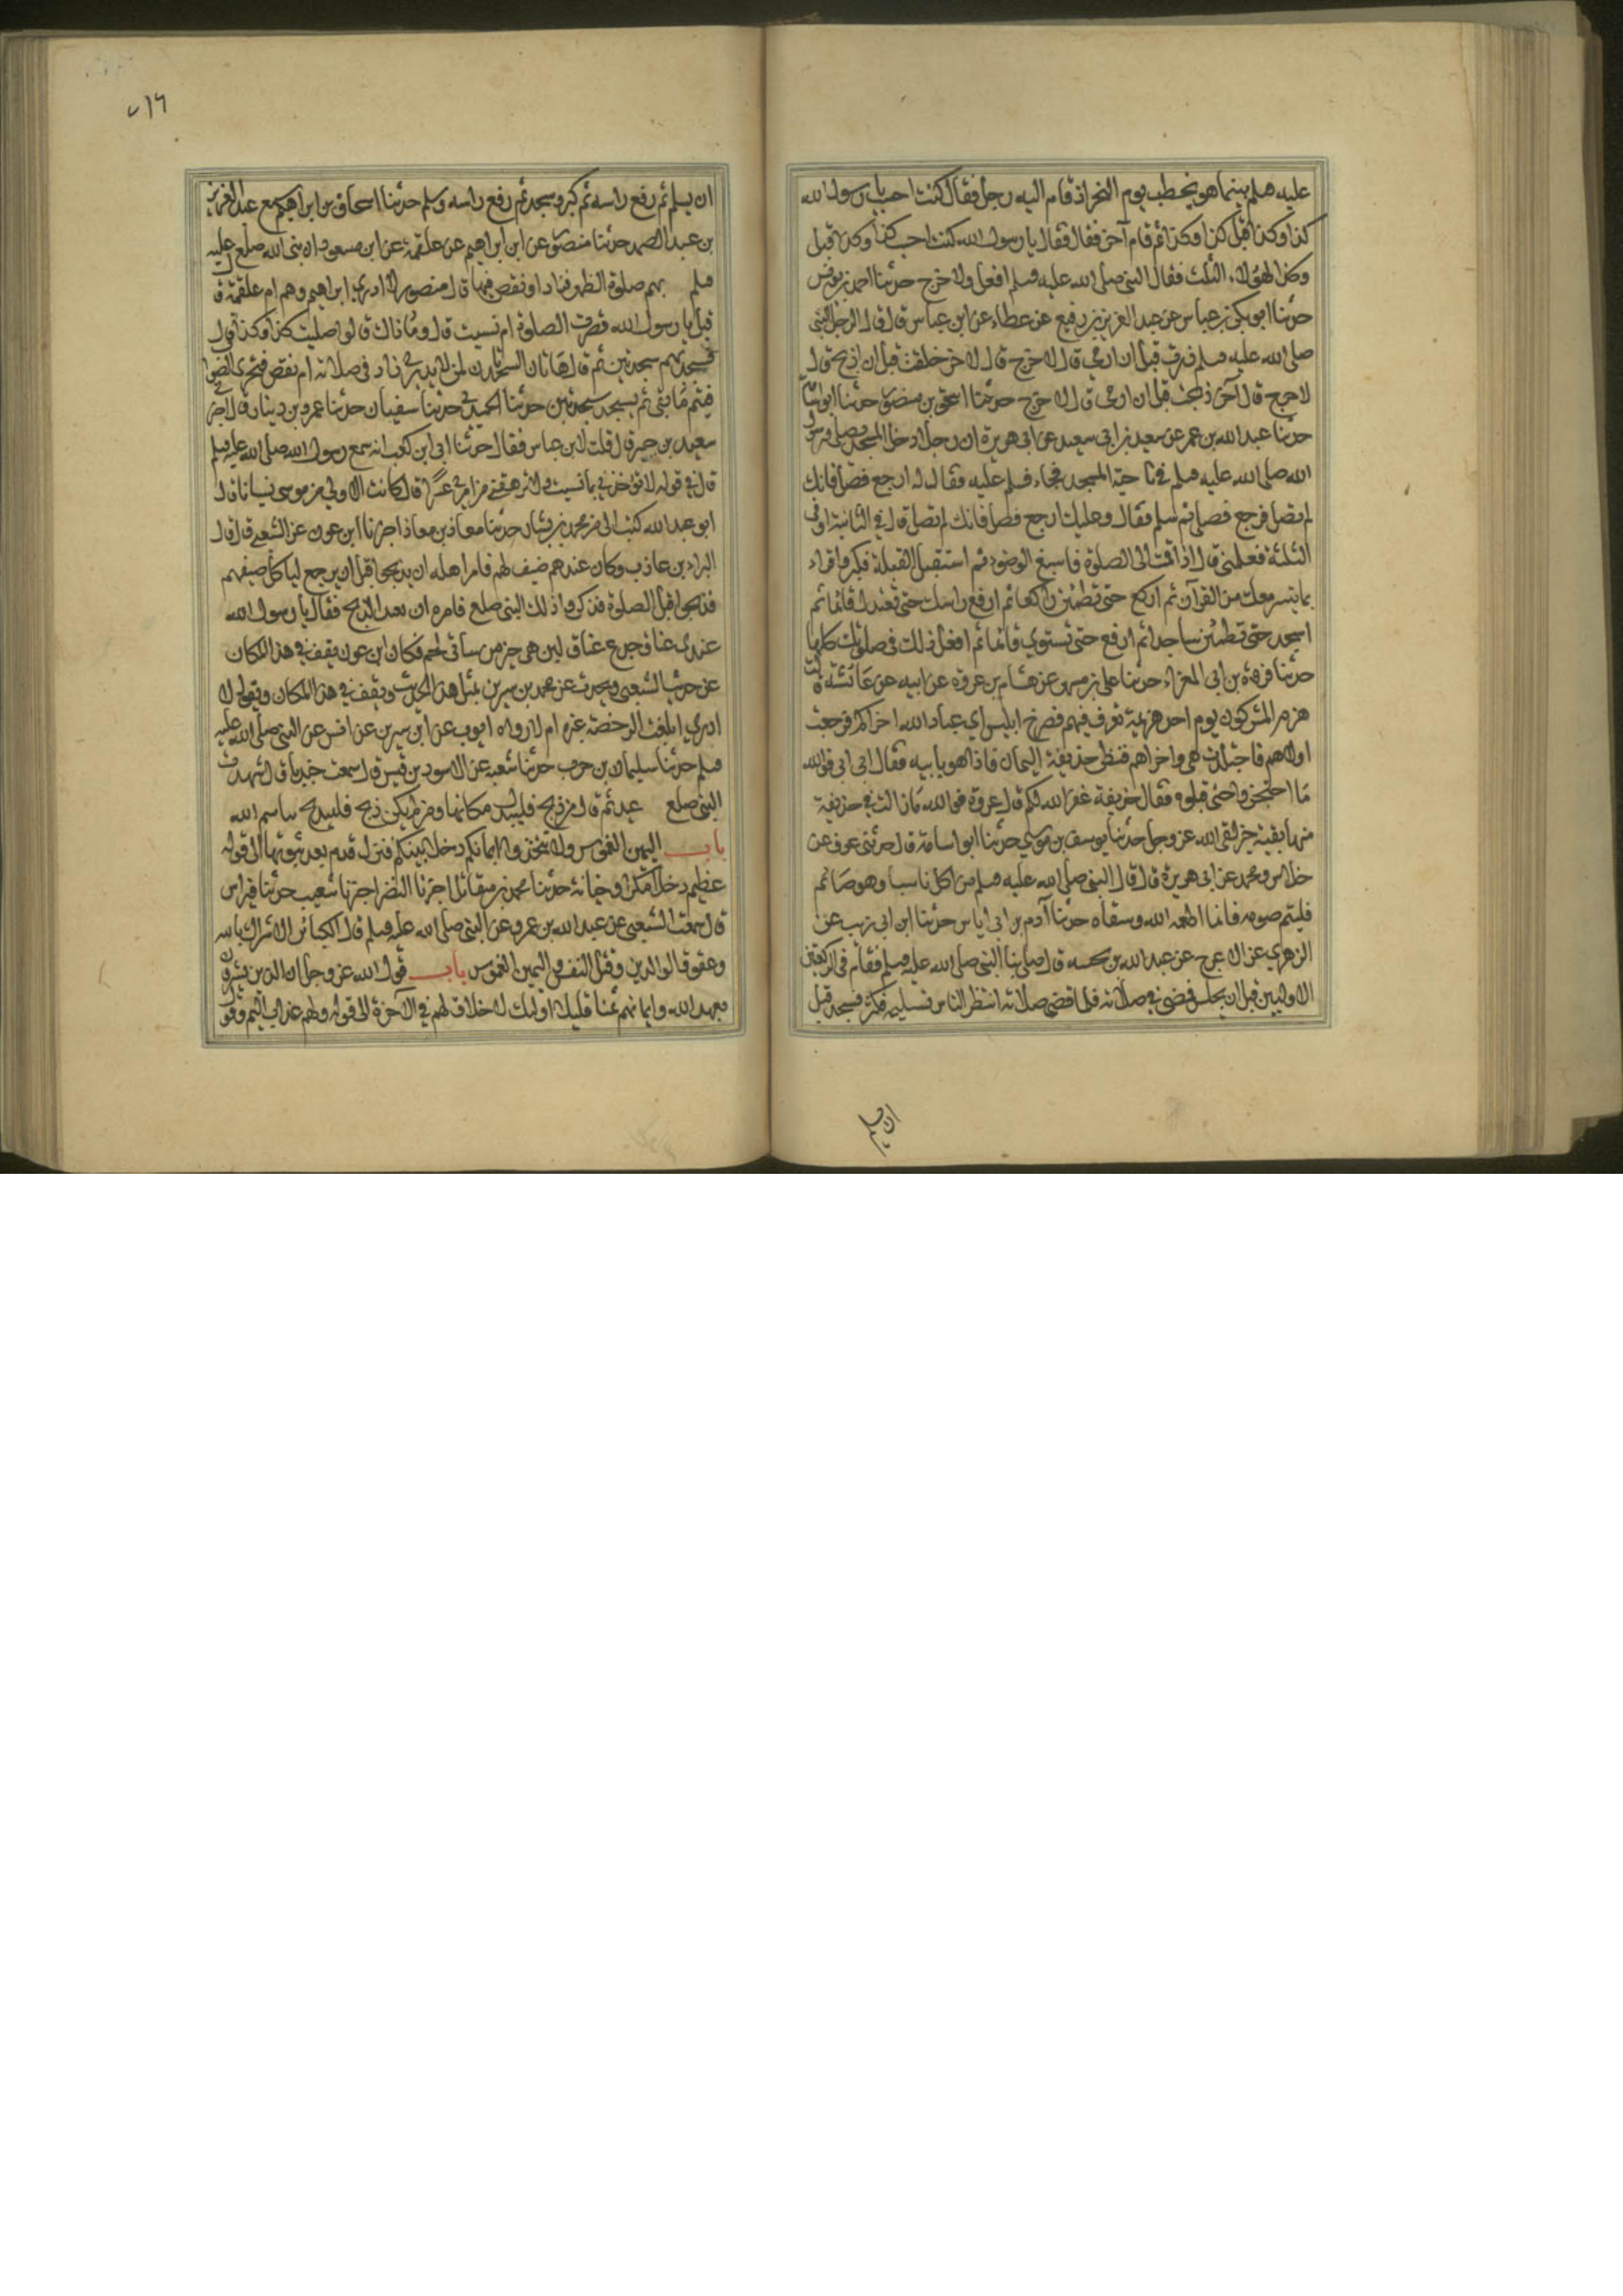 عليه وسلم بينما هو يخطب يوم النحر اذ قام اليه رجل فقال كنت احسب يا رسول الله
كذا وكذا قبل كذا وكذا ثم قام آخر فقال يا رسول الله كنت احسب كذا وكذا قبل
وكذا لهؤلاء الثلث فقال النبي صلى الله عليه وسلم افعل ولا حرج حدثنا احمد بن يونس
حدثنا ابو بكر بن عياش عن عبد العزيز بن رفيع عن عطاء عن ابن عباس قال قال رجل للنبي
صلى الله عليه وسلم زرت قبل ان ارمي قال لا حرج قال آخر حلقت قبل ان اذبح قال
لا حرج قال آخر ذبحت قبل ان ارمي قال لا حرج حدثنا اسحق بن منصور حدثنا ابو اسامة
حدثنا عبيد الله بن عمر عن سعيد بن ابي سعيد عن ابي هريرة ان رجلا دخل المسجد فصلى ورسول
الله صلى الله عليه وسلم في ناحية المسجد فجاء فسلم عليه فقال له ارجع فصل فانك
لم تصل فرجع فصلى ثم سلم فقال وعليك ارجع فصل فانك لم تصل قال في الثانية او في
الثلثة فعلمني قال اذا قمت الى الصلوة فاسبغ الوضوء ثم استقبل القبلة فكبر واقراء
بما تيسر معك من القرآن ثم اركع حتى تطمئن راكعا ثم ارفع راسك حتى تعتدل قائما ثم
اسجد حتى تطمئن ساجدا ثم ارفع حتى تستوي قائما ثم افعل ذلك في صلوتك كلها
حدثنا فروة بن ابي المغراء حدثنا علي بن مسهر عن هشام بن عروة عن ابيه عن عائشة قالت
هزم المشركون يوم احد هزيمة تعرف فيهم فصرخ ابليس اي عباد الله اخراكم فرجعت
اولاهم فاجتلدت هي واخراهم فنظر حذيفة اليمان فاذا هو بابيه فقال ابي ابي فوالله
ما انحجزوا حتى قتلوه فقال حذيفة غفر الله لكم قال عروة فوالله ما زالت في حذيفة
منها بقية حتى لقي الله عز وجل حدثنا يوسف بن موسى حدثنا ابو اسامة قال حدثني عوف عن
خلاس ومحمد عن ابي هريرة قال قال النبي صلى الله عليه وسلم من اكل ناسيا وهو صائم
فليتم صومه فانما اطعمه الله وسقاه حدثنا آدم بن ابي اياس حدثنا ابن ابي ذيب عن
الزهري عن الاعرج عن عبد الله بن بحينه قال صلى بنا النبي صلى الله عليه وسلم فقام في الركعتين
الاوليين قبل ان يجلس فمضى في صلاته فلما قضى صلاته انتظر الناس تسليمه فكبر فسجد قبل
ان يسلم
٧١٦
ان يسلم ثم رفع راسه ثم كبر وسجد ثم رفع راسه وسلم حدثنا اسحاق بن ابراهيم سمع عبد العزيز
بن عبد الصمد حدثنا منصور عن ابراهيم عن علقمة عن ابن مسعود ان نبي الله صلعم عليه
وسلم بهم صلوة الظهر فزاد او نقص منها قال منصور لا ادري ابراهيم وهم ام علقمة قال
قيل يا رسول الله قصرت الصلوة ام نسيت قال وما ذاك قالوا صليت كذا وكذا قال
فسجد بهم سجدتين ثم قال هاتان السجدتان لمن لا يدري زاد في صلاته ام نقص فتحرى الصواب
فيتم ما بقي ثم يسجد سجدتين حدثنا الحميدي حدثنا سفيان حدثنا عمرو بن دينار قال اخبرني
سعيد بن جبير قال قلت لابن عباس فقال حدثنا ابي ابن كعب انه سمع رسول الله صلى الله عليه وسلم
قال في قوله لا تؤاخذني بما نسيت ولا ترهقني من امري عسرا قال كانت الاولى من موسى نسيانا قال
ابو عبد الله كتب الى من محمد بن بشار حدثنا معاذ بن معاذ اخبرنا ابن عون عن الشعبي قال قال
البراء بن عازب وكان عندهم ضيف لهم فامر اهله ان يذبحوا قبل ان يرجع لياكل ضيفهم
فذبحوا قبل الصلوة فذكروا ذلك النبي صلعم فامره ان يعد الذبح فقال يا رسول الله
عندي عناق جذع عناق لبن هي خير من شاتي لحم فكان ابن عون يقف في هذا المكان
عن حديث الشعبي ويحدث عن محمد بن سيرين بمثل هذا الحديث ويقف في هذا المكان ويقول لا
ادري ابلغت الرخصة غيره ام لا رواه ايوب عن ابن سيرين عن انس عن النبي صلى الله عليه
وسلم حدثنا سليمان بن حرب حدثنا شعبه عن الاسود بن قيس قال سمعت جندبا قال شهدت
النبي صلعم عيد ثم قال من ذبح فليبدل مكانها ومن لم يكن ذبح فليذبح باسم الله
باب اليمين الغموس ولا تتخذوا ايمانكم دخلا بينكم فتزل قدم بعد ثبوتها الى قوله
عظيم دخلا مكرا وخيانة حدثنا محمد بن مقاتل اخبرنا النضر اخبرنا شعيب حدثنا فراس
قال سمعت الشعبي عن عبد الله بن عمرو عن النبي صلى الله عليه وسلم قال الكبائر الاشراك بالله
وعقوق الوالدين وقتل النفس واليمين الغموس باب قول الله عز وجل ان الذين يشترون
بعهد الله وايمانهم ثمنا قليلا اولئك لا خلاق لهم في الآخرة الى قوله ولهم عذاب اليم وقول